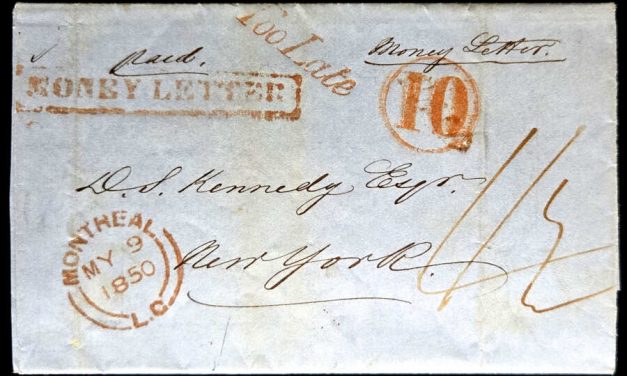 Too Late
paid. Money Letter.
MONEY LETTER
10
D. S. Kennedy Esqr.
New York.
MONTREAL
MY 9
1850
L.C